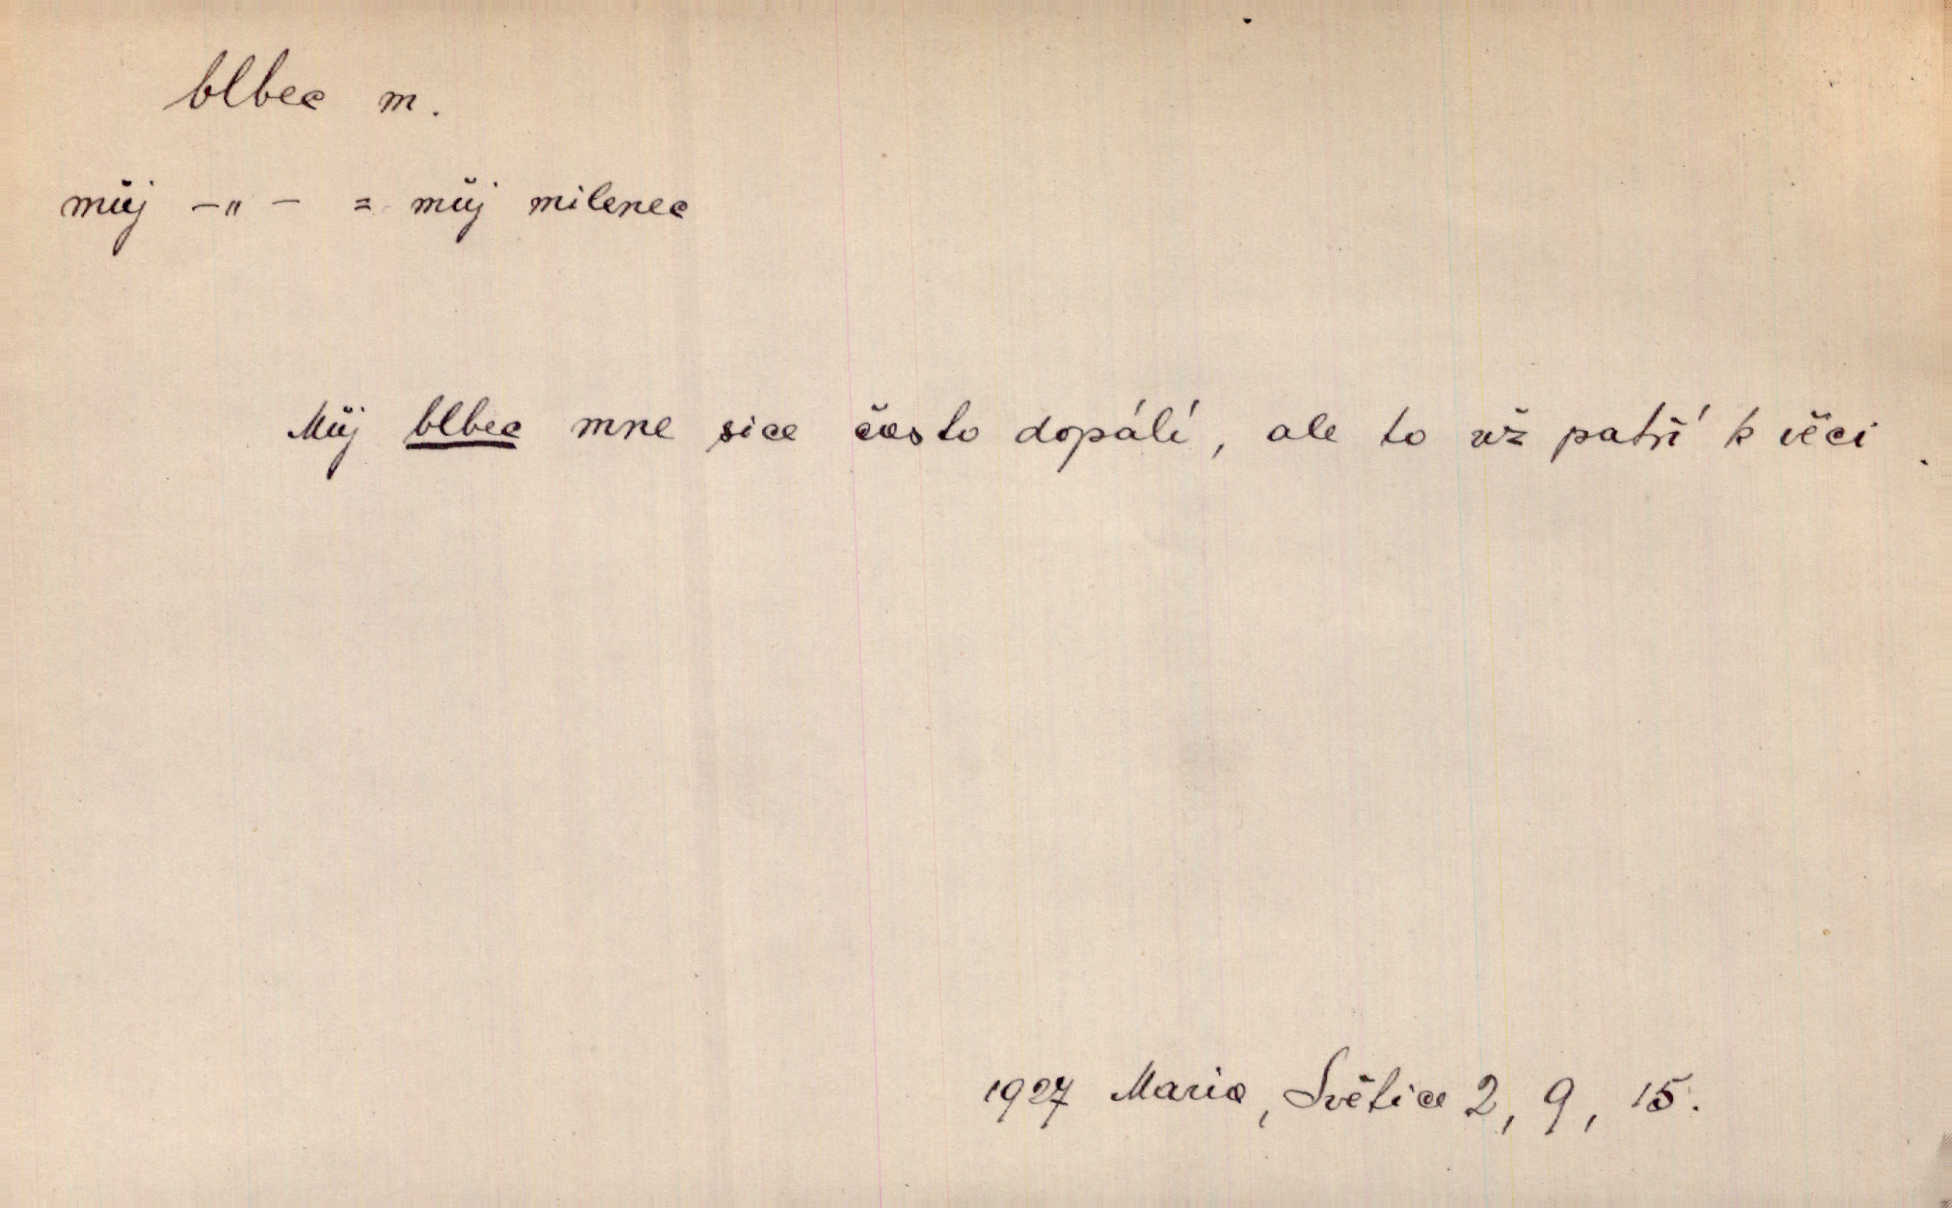 blbec m.
můj –„– = můj milenec
Můj blbec mne sice často dopálí, ale to už patří k věci.
1927 Maria, Světice 2, 9, 15.